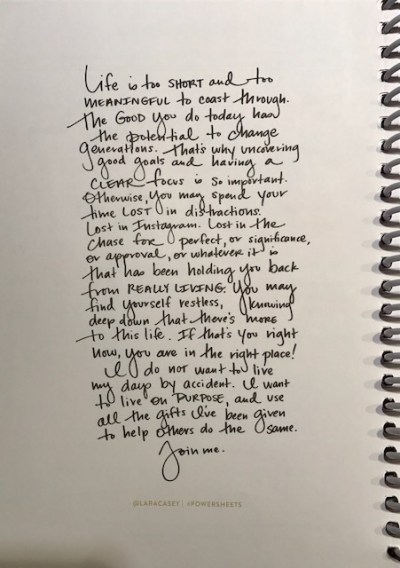 Life is too SHORT and too
MEANINGFUL to coast through.
The GOOD you do today has
the potential to change
generations. That's why uncovering
good goals and having a
CLEAR focus is so important.
Otherwise, you may spend your
time LOST in distractions.
Lost in Instagram. Lost in the
chase for perfect, or significance,
or approval, or whatever it is
that has been holding you back
from REALLY LIVING. You may
find yourself restless, knowing
deep down that there's MORE
to this life. If that's you right
now, you are in the right place!
I do NOT want to live
my days by accident. I want
to live on PURPOSE, and use
all the gifts I've been given
to help others do the same.
Join me.
@LARACASEY | #POWERSHEETS